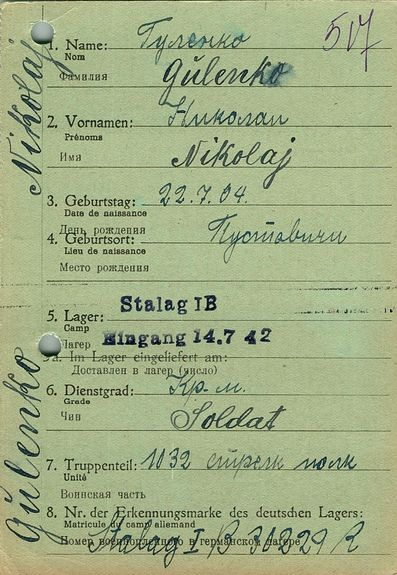 Nikolaj
Gülenko
517
1. Name: Гуленко
Nom
Фамилия Gülenko
2. Vornamen: Николай
Prénoms
Имя Nikolaj
3. Geburtstag: 22.7.04.
Date de naissance
День рождения
4. Geburtsort: Пустовичи
Lieu de naissance
Место рождения
Stalag IB
5. Lager:
Camp
Лагерь
Eingang 14.7 42
5a. Im Lager eingeliefert am:
Доставлен в лагер (число)
6. Dienstgrad: Кр-м.
Grade
Чин Soldat
7. Truppenteil: 1032 стрелк полк
Unité
Воинская часть
8. Nr. der Erkennungsmarke des deutschen Lagers:
Matricule du camp allemand
Номер военнопленного в германском лагере
Stalag I B 36229 R